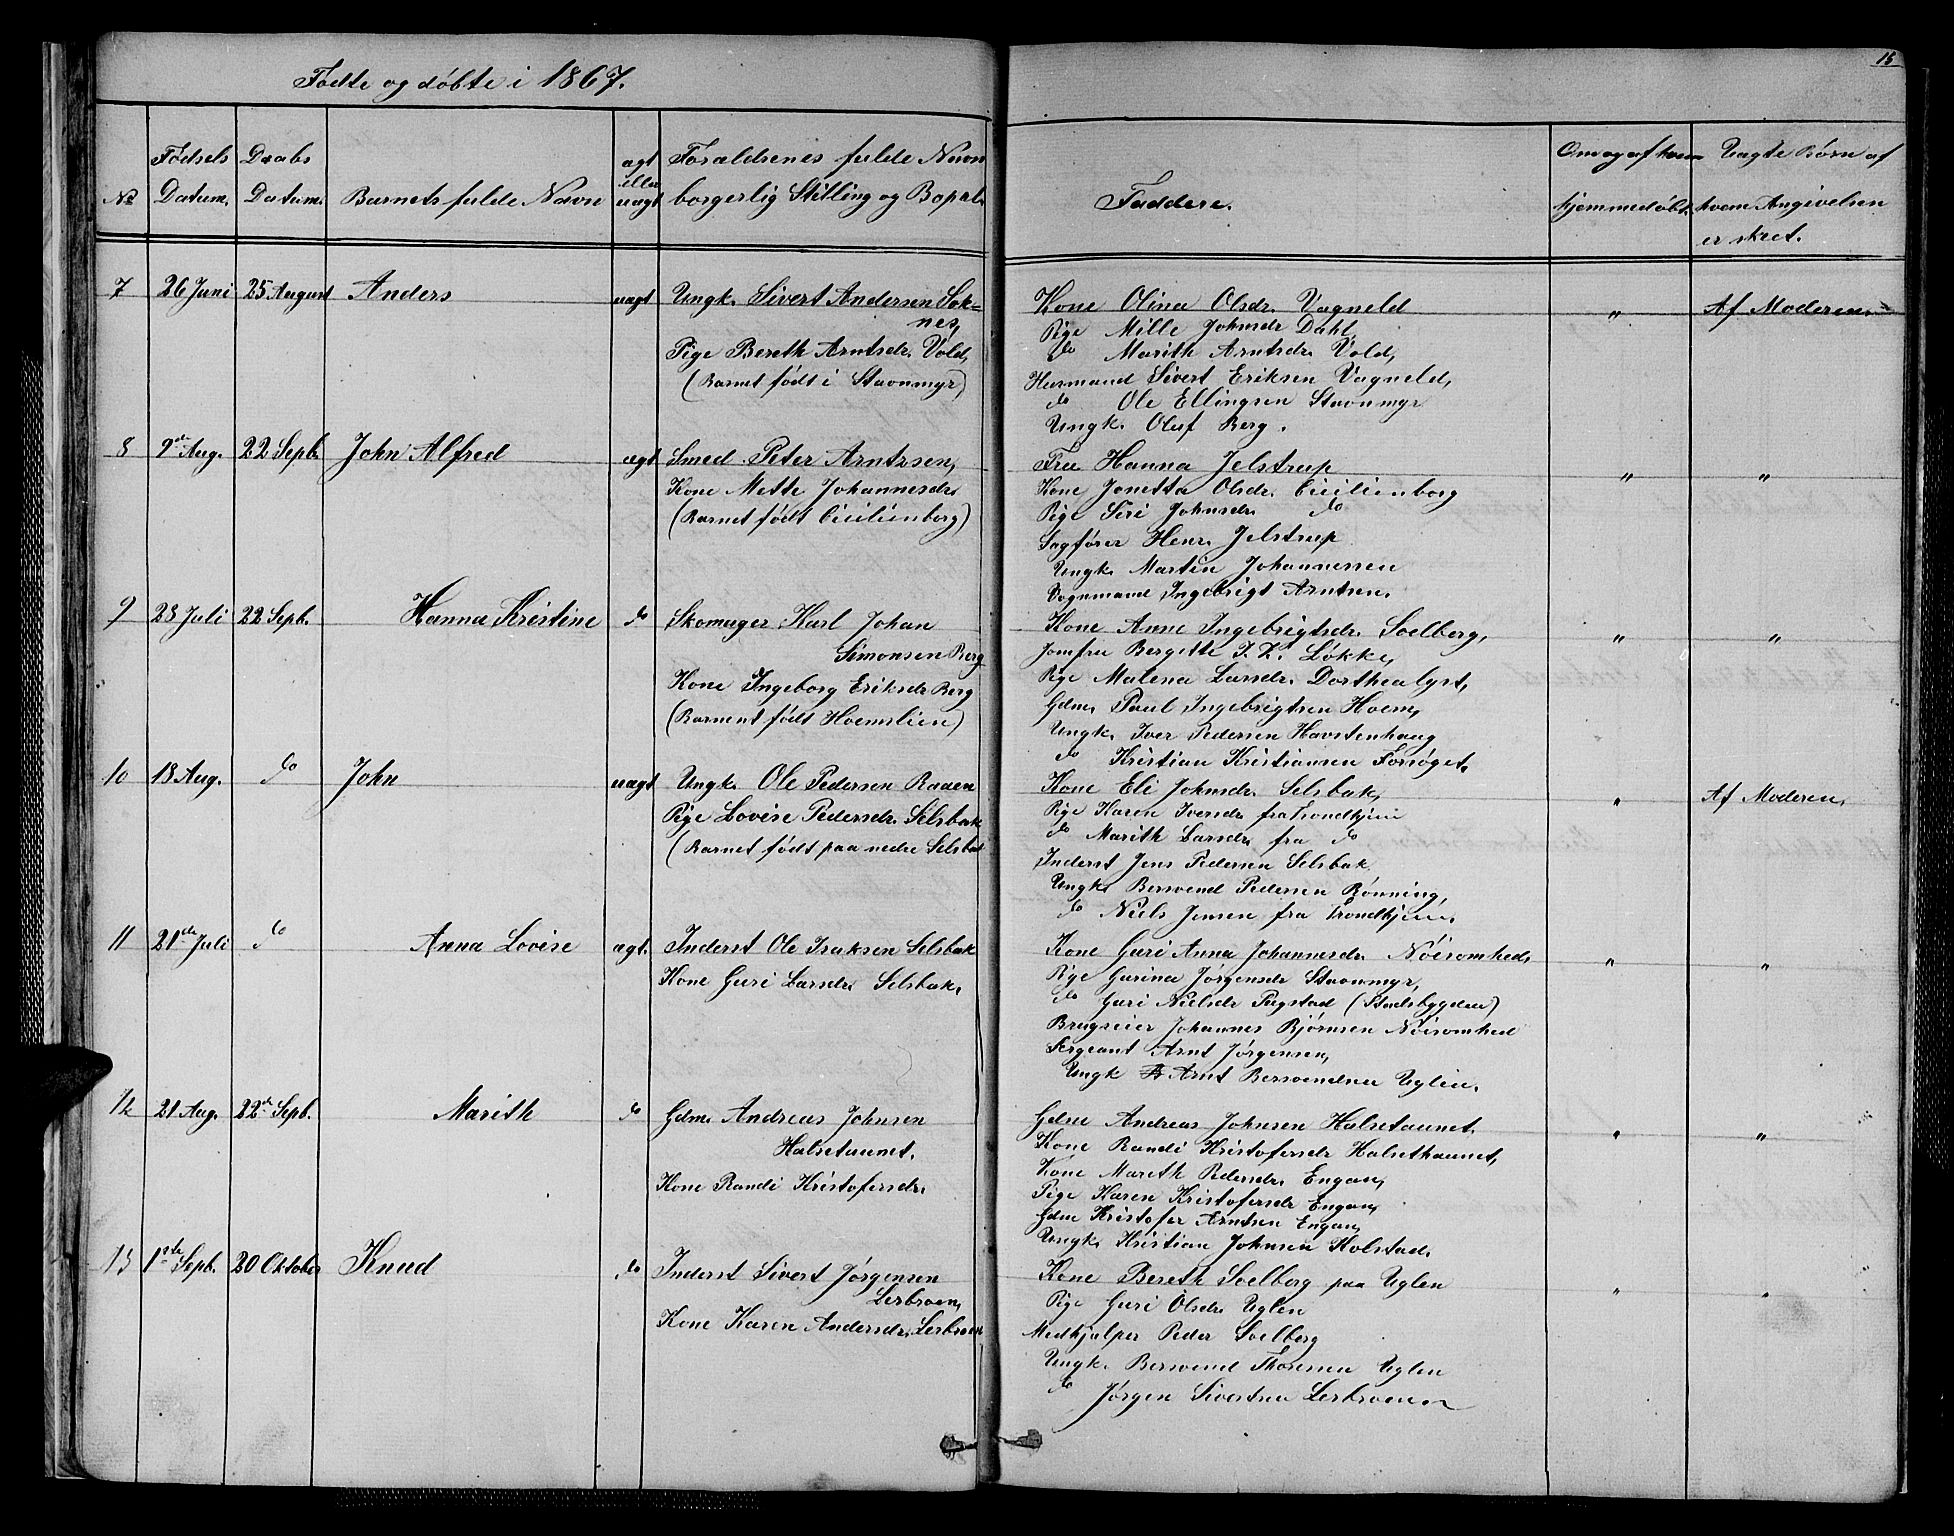 15
Fødte og døbte i 1867.
No
Fødsels Datum.
Daabs Datum.
Barnets fulde Navn
ægt eller uægt
Forældrenes fulde Navn borgerlig Stilling og Bopæl.
Faddere.
Om og af hvem hjemmedøbt.
Uægte Børn af hvem Angivelsen er skeet.
7 26 Juni 25 August Anders uægt Ungk. Sivert Andersen Sok=
nes,
Pige Bereth Arntsdr. Vold,
(Barnet født i Stavnmyr)
Kone Olina Olsdr. Vagneld " Af Moderen.
Pige Mille Johnsdr Dahl,
do Marith Arntsdr. Vold,
Husmand Sivert Eriksen Vagneld,
do Ole Ellingsen Stavnmyr
Ungk. Oluf Berg.
8 9de Aug. 22 Sepb. John Alfred ægt Smed Peter Arntzsen,
Kone Mette Johannesdr.
(Barnet født Cicilienborg)
Frue Hanna Jelstrup " "
Kone Jonetta Olsdr. Cicilienborg
Pige Siri Johnsdr. do
Sagfører Henr. Jelstrup
Ungk. Martin Johannessen
Vognmand Ingebrigt Arntsen.
9 28 Juli 22 Sepb. Hanna Kristine do Skomager Karl Johan
Simonsen Berg
Kone Ingeborg Eriksdr Berg
(Barnent født Hoemslien)
Kone Anne Ingebrigtsdr. Soelberg, " "
Jomfru Bergitte Løkke,
Pige Malena Larsdr. Dorthealyst,
Gdm. Paul Ingebrigtsen Hoem,
Ungk. Iver Pedersen Havstenhaug
do Kristian Kristiansen Forsøget.
10 18 Aug. do John uægt Ungk. Ole Pedersen Raaen
Pige Lovise Pedersdr. Selsbak
(Barnet født paa nedre Selsbak
Kone Eli Johnsdr. Selsbak, " Af Moderen,
Pige Karen Iversdr fra Trondhjem
do Marith Larsdr. fra do
Inderst Jens Pedersen Selsbak
Ungk. Bersvend Pedersen Rønning,
do Niels Jensen fra Trondhjem.
11 21de Juli do Anna Lovise ægt. Inderst Ole Isaksen Selsbak
Kone Guri Larsdr. Selsbak.
Kone Guri Anna Johannesdr. Nøisomhed, " "
Pige Gurina Jørgensdr Stavnmyr,
do Guri Nielsdr Rugstad (Stadsbygden)
Brugseier Johannes Bjørnsen Nøisomhed
Sergeant Arnt Jørgensen,
Ungk Arnt Bersvendsen Uglen.
12 21 Aug. 22de Sepb. Marith do Gdm. Andreas Johnsen
Halsetaunet.
Kone Randi Kristofersdr.
Gdm Andreas Johnsen Halsetaunet. " "
Kone Randi Kristofersdr Halsethaunet,
Kone Marith Pedersdr. Engan,
Pige Karen Kristofersdr Engan,
Gdm Kristofer Arntsen Engan,
Ungk. Kristian Johnsen Kolstad.
13 1ste Sepb. 20 Oktober Knud do Inderst Sivert Jørgensen
Lerbroen,
Kone Karen Andersdr. Lerbroen
Kone Bereth Soelberg paa Uglen " "
Pige Guri Olsdr. Uglen
Medhjælper Peder Soelberg
Ungk. Bersvend Thoresen Uglen
do Jørgen Sivertsen Lerbroen